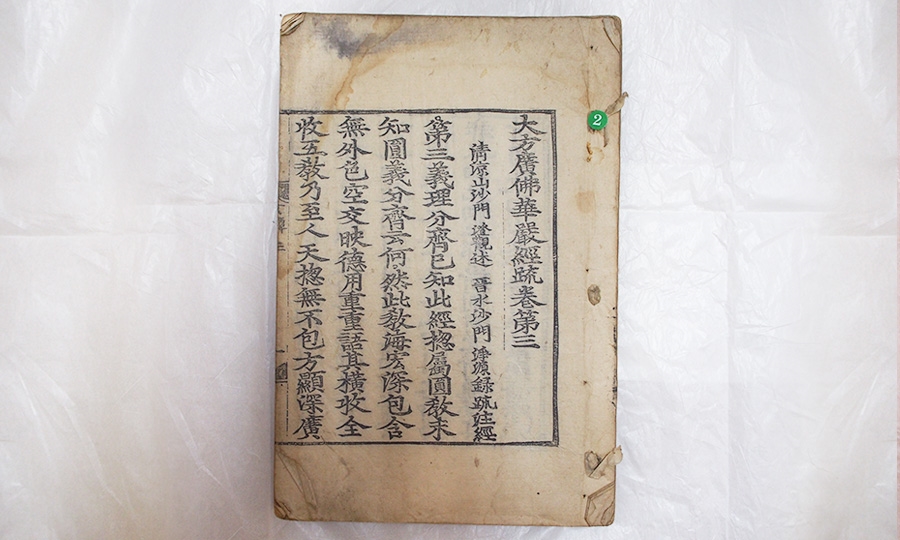 大方廣佛華嚴經䟽卷第三
清涼山沙門 澄觀述 晉水沙門 淨源錄䟽注經
第三義理分齊已知此經揔屬圓敎未
知圓義分齊云何然此敎海宏深包含
無外色空交映德用重重語其橫收全
收五敎乃至人天揔無不包方顯深廣
2